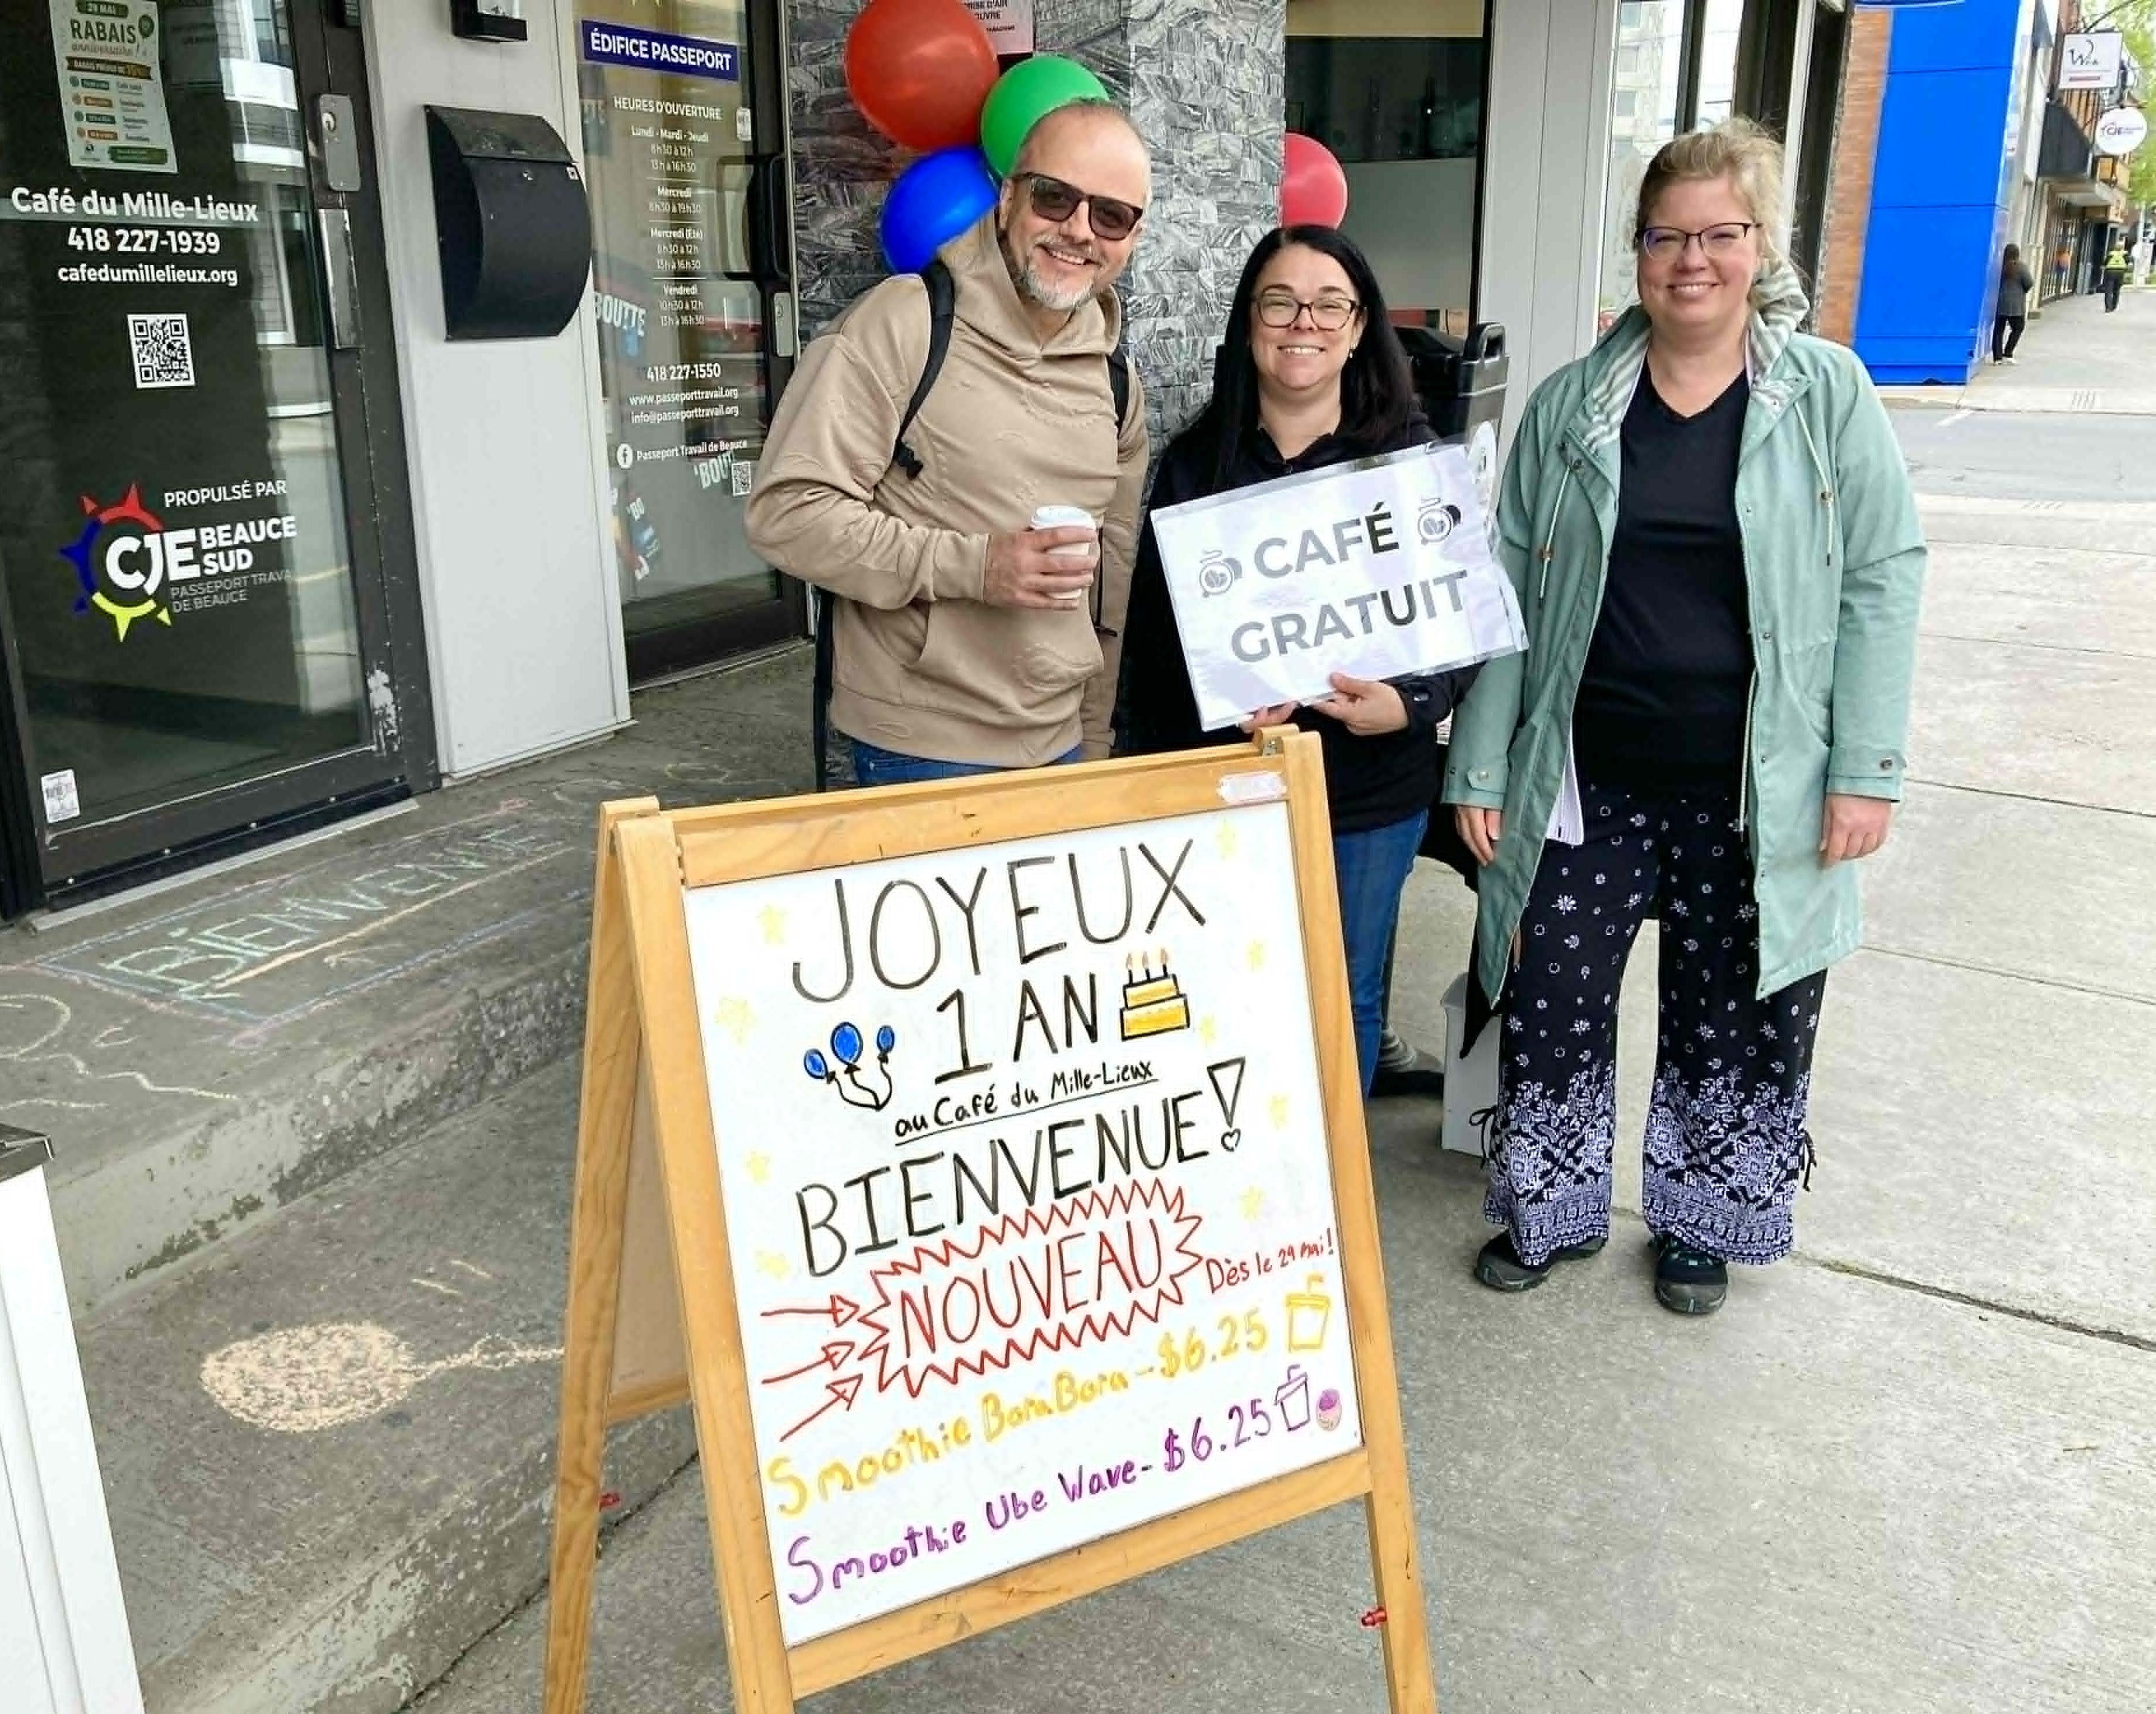 29 MAI
RABAIS
anniversaire!
Café du Mille-Lieux
418 227-1939
cafedumillelieux.org
PROPULSÉ PAR
CJE BEAUCE
SUD
PASSEPORT TRAVA
DE BEAUCE
ÉDIFICE PASSEPORT
HEURES D'OUVERTURE
Lundi - Mardi - Jeudi
8h30 à 12h
13h à 16h30
Mercredi
8h30 à 19h30
Mercredi (Été)
8h30 à 12h
13h à 16h30
Vendredi
10h30 à 12h
13h à 16h30
418 227-1550
www.passeporttravail.org
info@passeporttravail.org
Passeport Travail de Beauce
CAFÉ
GRATUIT
BIENVENUE
JOYEUX
1 AN
au Café du Mille-Lieux
BIENVENUE!
NOUVEAU
Dès le 29 mai!
Smoothie Bora Bora - $6.25
Smoothie Ube Wave - $6.25
CJE